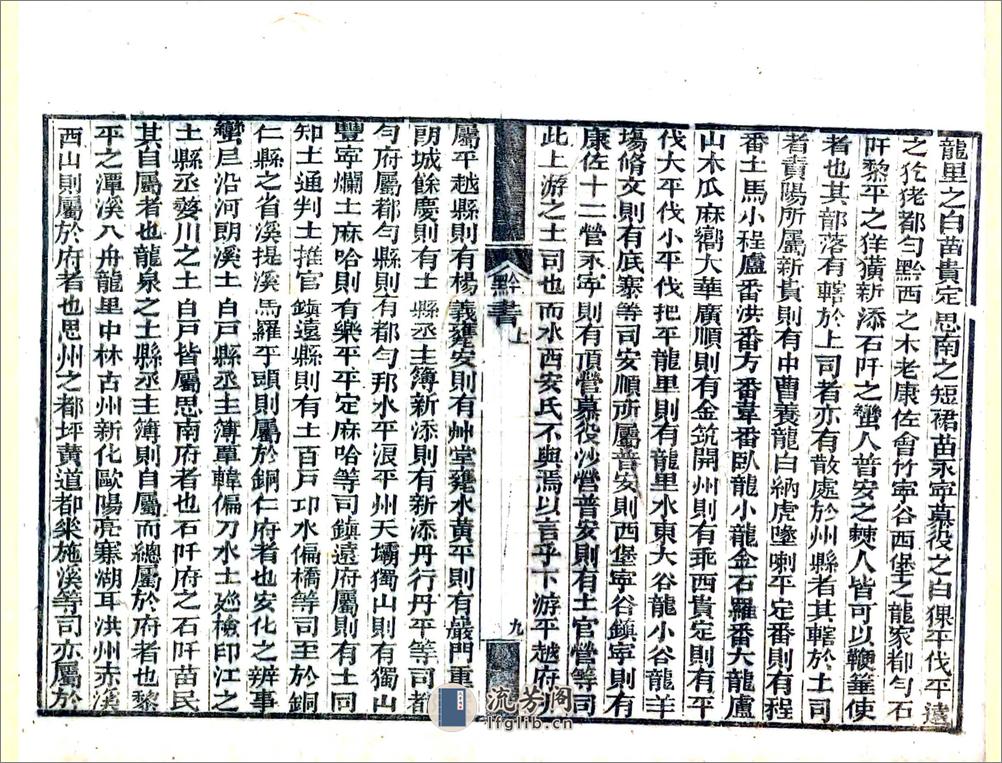 龍里之白苗貴定思南之短裙苗永寧募役之白猓平伐平遠
之犵狫都勻黔西之木老康佐會竹寧谷西堡之龍家都勻石
阡黎平之狑獚新添石阡之蠻人普安之僰人皆可以鞭箠使
者也其部落有轄於土司者亦有散處於州縣者其轄於土司
者貴陽所屬新貴則有中曹養龍白納虎墜喇平定番則有程
番土馬小程盧番洪番方番韋番臥龍小龍金石羅番大龍盧
山木瓜麻嚮大華廣順則有金筑開州則有乖西貴定則有平
伐大平伐小平伐把平龍里則有龍里水東大谷龍小谷龍羊
塲脩文則有底寨等司安順所屬普安則西堡寧谷鎮寧則有
康佐十二營永寧則有頂營慕役沙營普安則有土官營等司
此上游之土司也而水西安氏不與焉以言乎下游平越府
黔書 上
九
屬平越縣則有楊義甕安則有艸堂甕水黃平則有巖門重
朗城餘慶則有土縣丞主簿新添則有新添丹行丹平等司都
勻府屬都勻縣則有都勻邦水平浪平州天壩獨山則有獨山
豐寧爛土麻哈則有樂平平定麻哈等司鎮遠府屬則有土同
知土通判土推官鎮遠縣則有土百戶邛水偏橋等司至於銅
仁縣之省溪提溪烏羅平頭則屬於銅仁府者也安化之辨事
蠻夷沿河朗溪土百戶縣丞主簿覃韓偏刀水土廵檢印江之
土縣丞婺川之土百戶皆屬思南府者也石阡府之石阡苗民
其自屬者也龍泉之土縣丞主簿則自屬而總屬於府者也黎
平之潭溪八舟龍里中林古州新化歐陽亮寨湖耳洪州赤溪
西山則屬於府者也思州之都坪黃道都樂施溪等司亦屬於
流芳阁
lfglib.cn